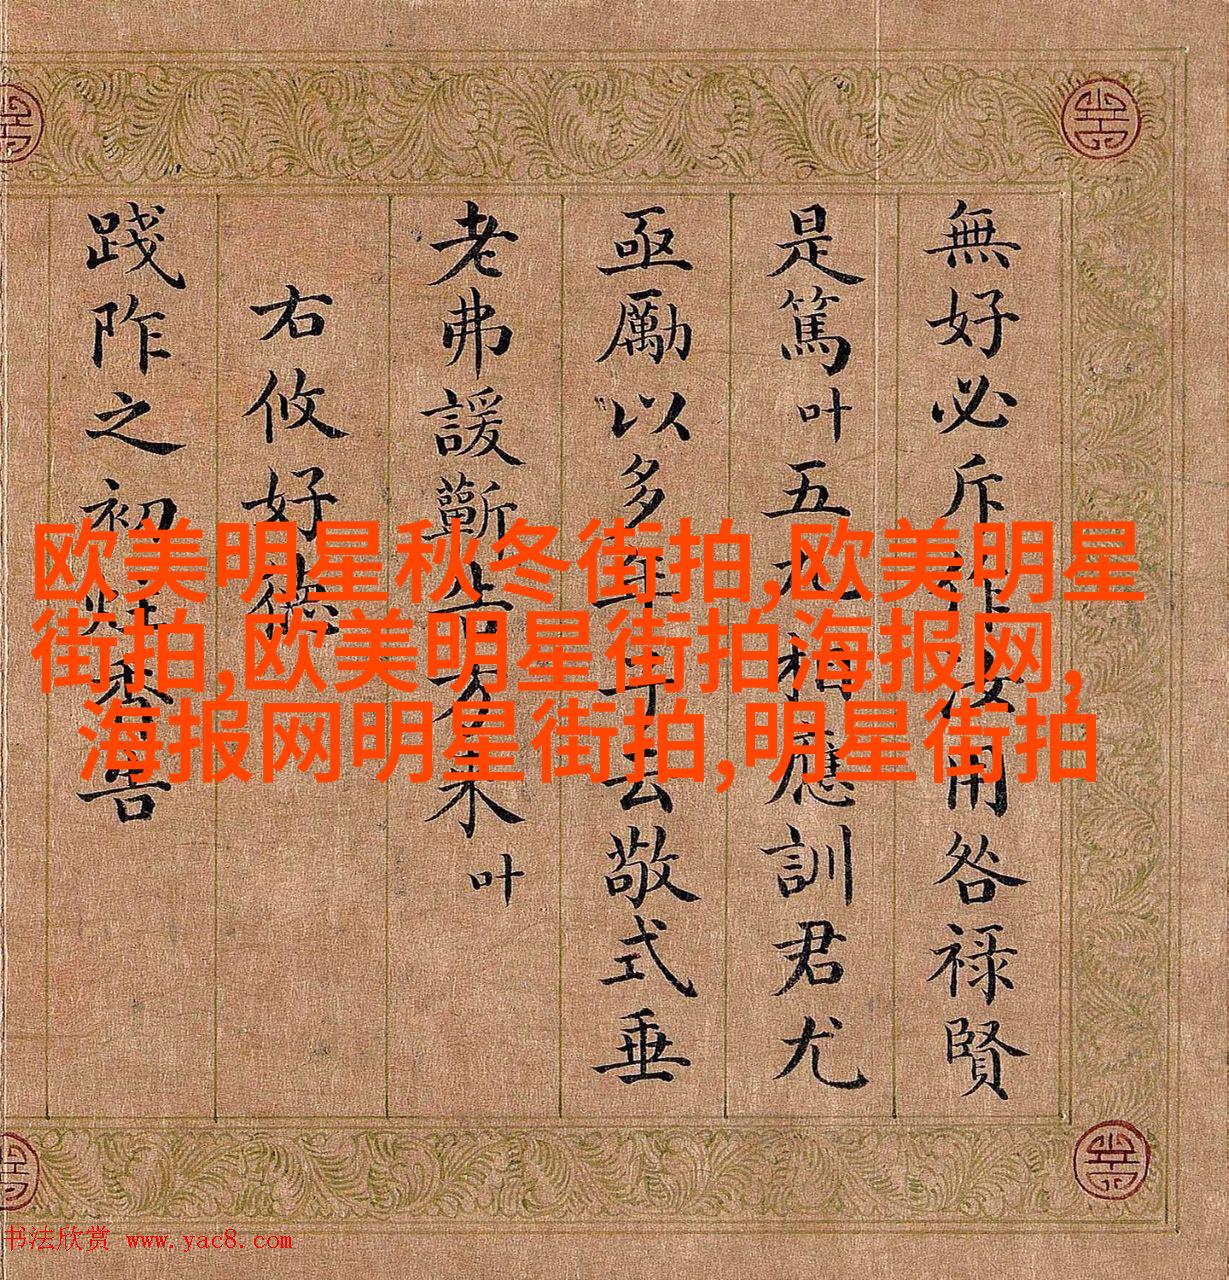 無好必斥作汝用咎祿賢
是篤叶五
應訓君尤
亟勵以多年
敬式垂
老弗諼蘄告方來叶
右攸好德
踐阼之初
香告
欧美明星秋冬街拍,欧美明星
街拍,欧美明星街拍海报网,
海报网明星街拍,明星街拍
书法欣赏 www.yac8.com